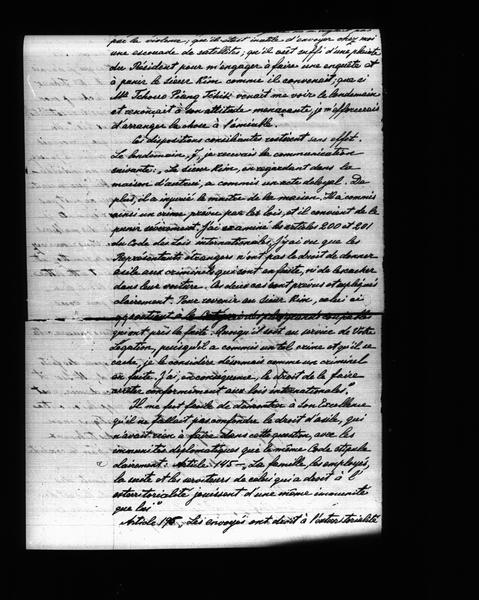 par la violence, qu'il était inutile d'envoyer chez moi
une escouade de satellites; qu'il eût suffi d'une plainte
du Président pour m'engager à faire une enquête et
à punir le sieur Kim comme il convenait, que si
Mr Tcheou Pang Tchik venait me voir le lendemain
et renonçait à son attitude menaçante, je m'efforcerais
d'arranger la chose à l'amiable.
Ces dispositions conciliantes restèrent sans effet.
Le lendemain, 7, je recevais la communication
suivante: "Le sieur Kim, en regardant dans la
maison d'autrui, a commis un acte déloyal. De
plus, il a injurié le maître de la maison. Il a commis
ainsi un crime prévu par les lois, et il convient de le
punir sévèrement. J'ai examiné les articles 200 et 201
du Code des Lois internationales, j'y ai vu que les
Représentants étrangers n'ont pas le droit de donner
asile aux criminels qui sont en fuite, ni de les cacher
dans leur voiture. Ces deux cas sont prévus et expliqués
clairement. Pour revenir au sieur Kim, celui-ci
appartient à la catégorie des plus grands coupables
qui ont pris la fuite. Quoiqu'il soit au service de Votre
Légation, puisqu'il a commis un tel crime et qu'il se
cache, je le considère désormais comme un criminel
en fuite. J'ai, en conséquence, le droit de le faire
arrêter conformément aux lois internationales."
Il me fut facile de démontrer à Son Excellence
qu'il ne fallait pas confondre le droit d'asile, qui
n'avait rien à faire dans cette question, avec les
immunités diplomatiques que le même Code stipule
clairement: Article 145 - "La famille, les employés,
la suite et les serviteurs de celui qui a droit à l'
exterritorialité jouissent d'une même immunité
que lui"
Article, Les envoyés ont droit à l'exterritorialité